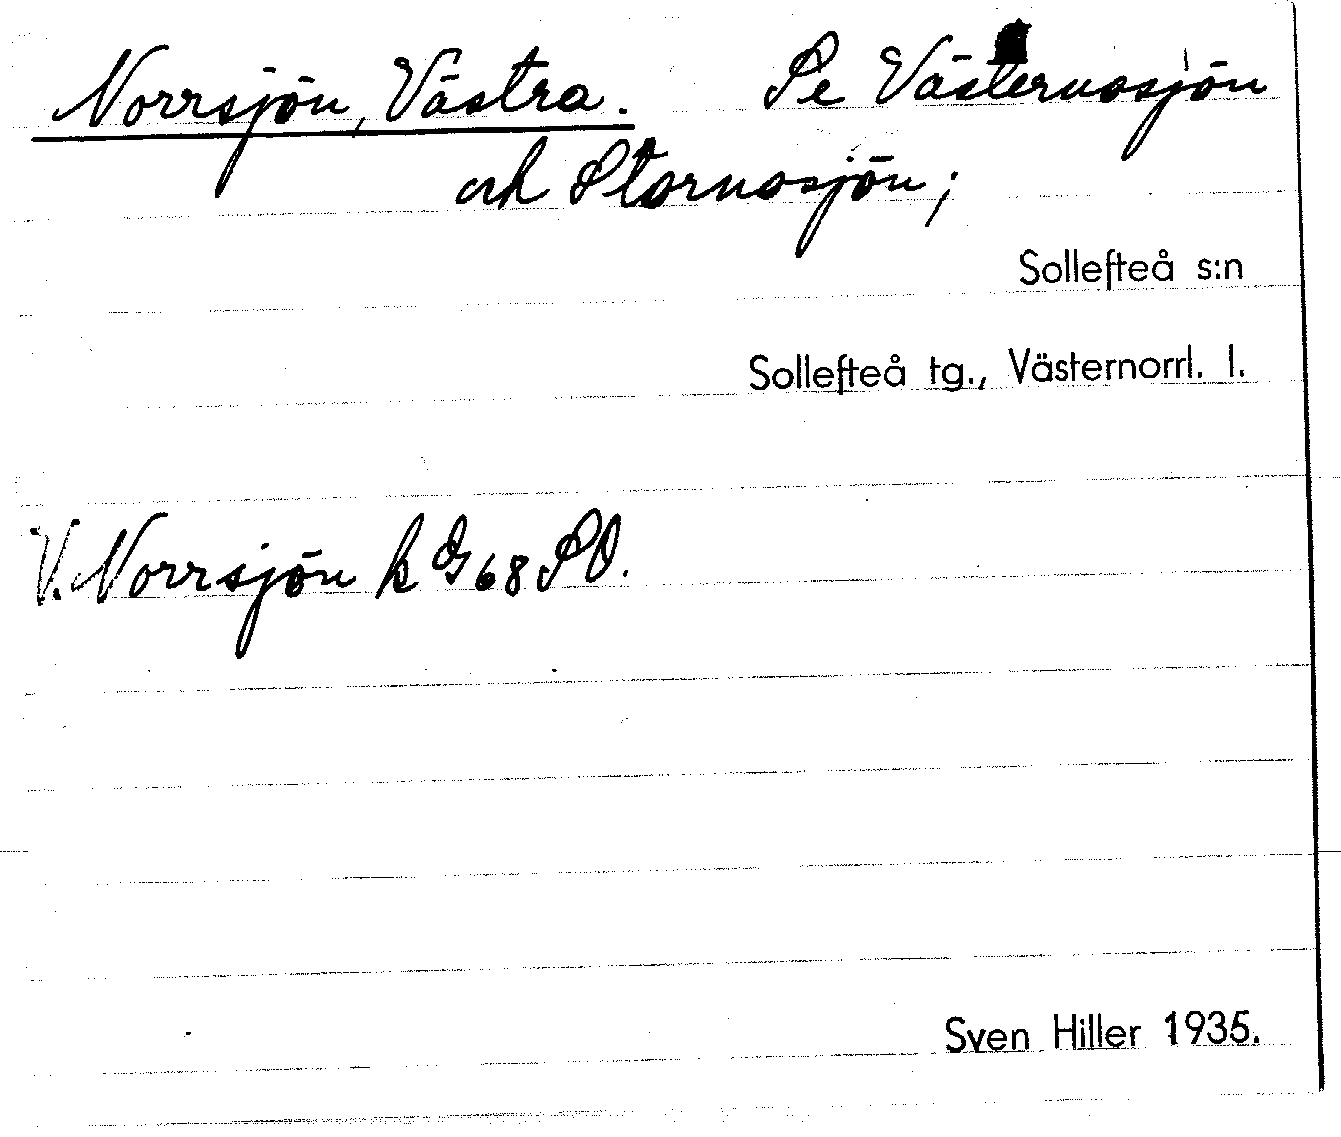 Norrsjön, Västra. Se Västernosjön
och Stornosjön;
Sollefteå s:n
Sollefteå tg., Västernorrl. l.
V. Norrsjön k G 68 SO.
Sven Hiller 1935.